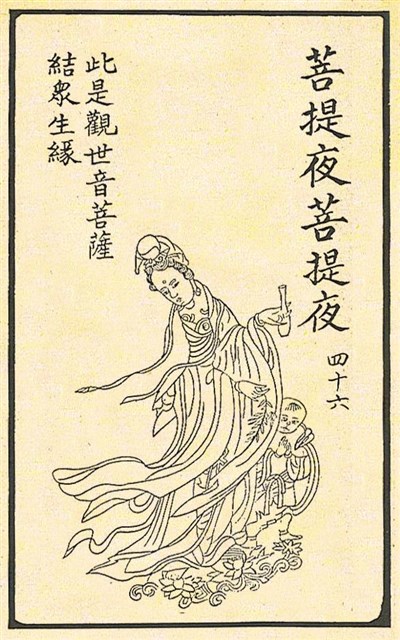 菩提夜菩提夜
四十六
此是觀世音菩薩
結眾生緣